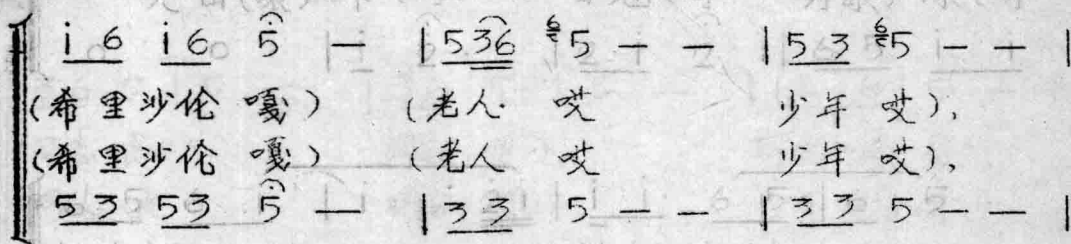 i 6 i 6 5 — | 5 3 6 ⁶5 — — | 5 3 ⁶5 — — |
(希里沙伦 嘎) (老人 哎 少年 哎),
(希里沙伦 嘎) (老人 哎 少年 哎),
5 3 5 3 5 — | 3 3 5 — — | 3 3 5 — — |